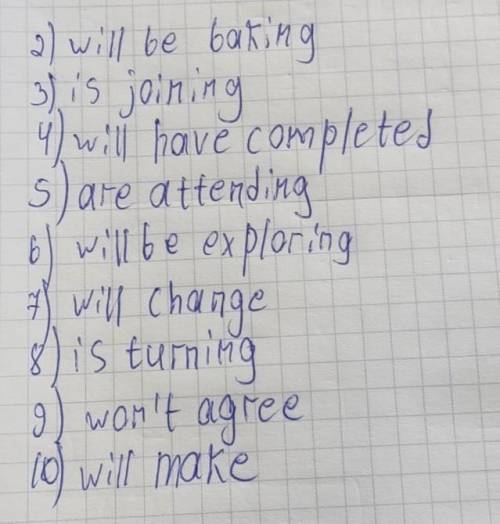 2) will be baking
3) is joining
4) will have completed
5) are attending
6) will be exploring
7) will change
8) is turning
9) won't agree
10) will make